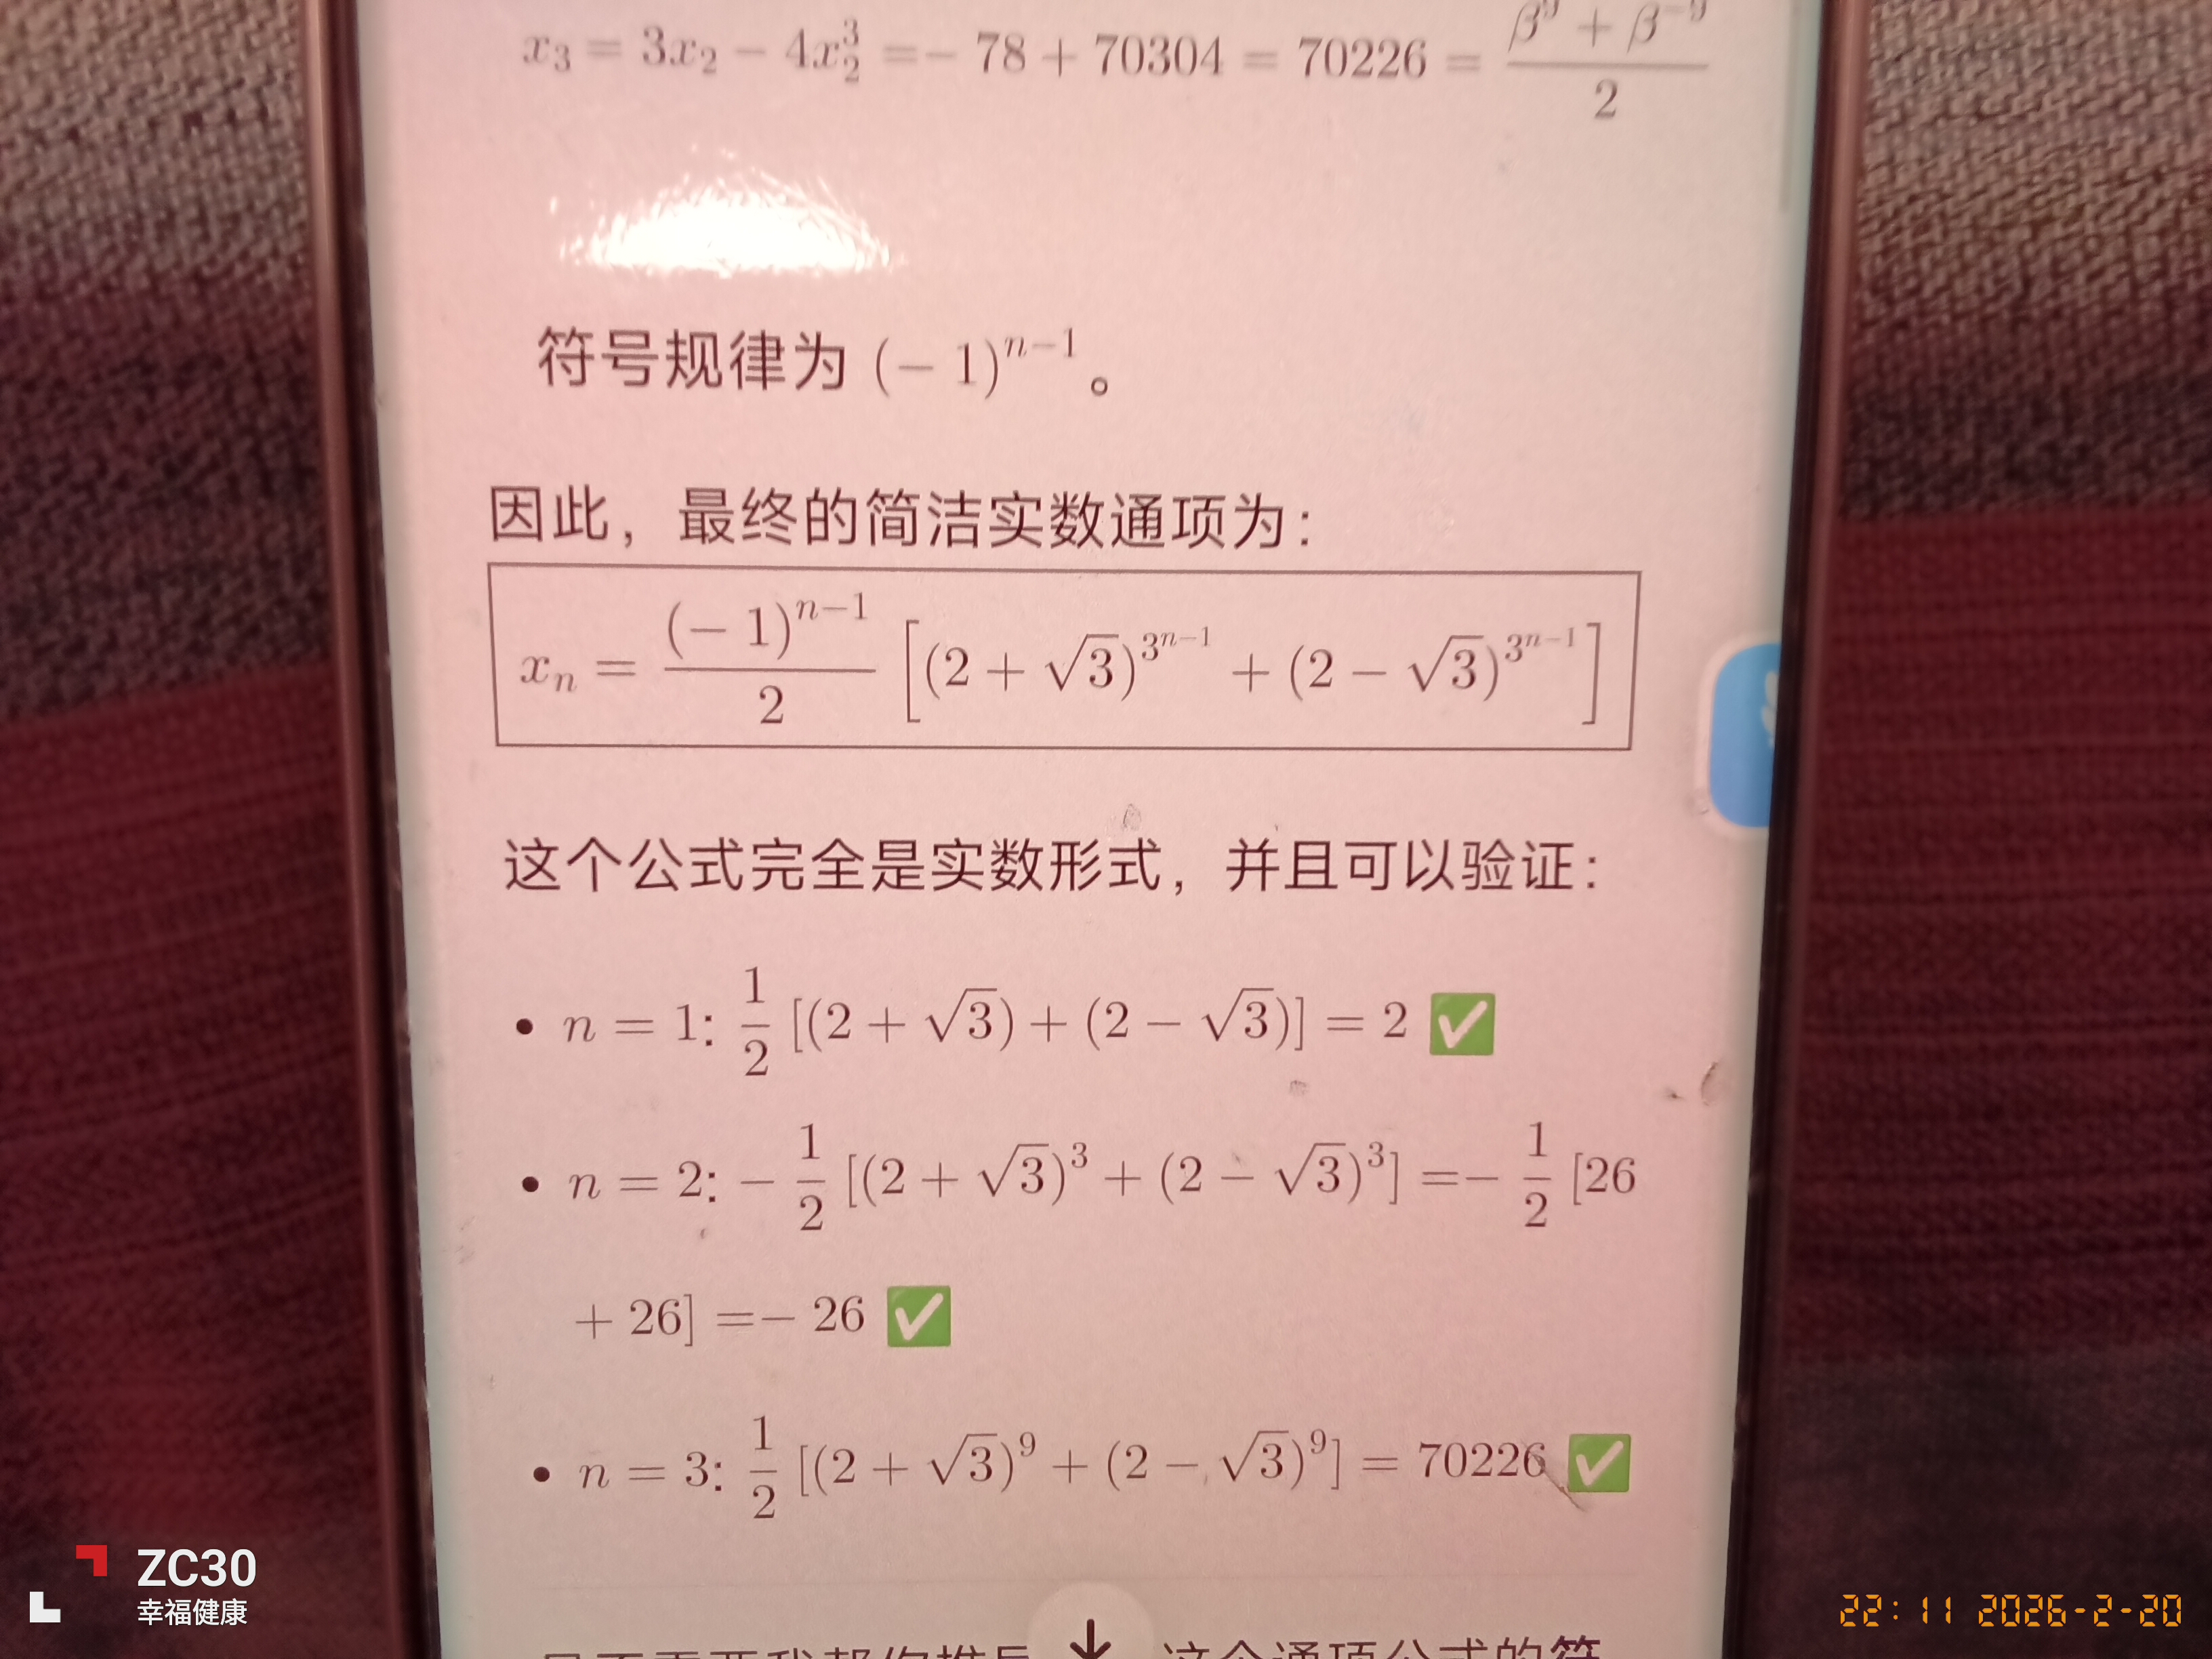 x₃ = 3x₂ − 4x₂³ =− 78 + 70304 = 70226 = (β⁹ + β⁻⁹)/2
符号规律为 (− 1)^{n−1}。
因此，最终的简洁实数通项为：
xₙ = (− 1)^{n−1}/2 [(2 + √3)^{3^{n−1}} + (2 − √3)^{3^{n−1}}]
这个公式完全是实数形式，并且可以验证：
• n = 1: 1/2 [(2 + √3) + (2 − √3)] = 2 ✅
• n = 2: − 1/2 [(2 + √3)³ + (2 − √3)³] =− 1/2 [26
+ 26] =− 26 ✅
• n = 3: 1/2 [(2 + √3)⁹ + (2 − √3)⁹] = 70226 ✅
这个通项公式的符
ZC30
幸福健康
22:11 2026-2-20